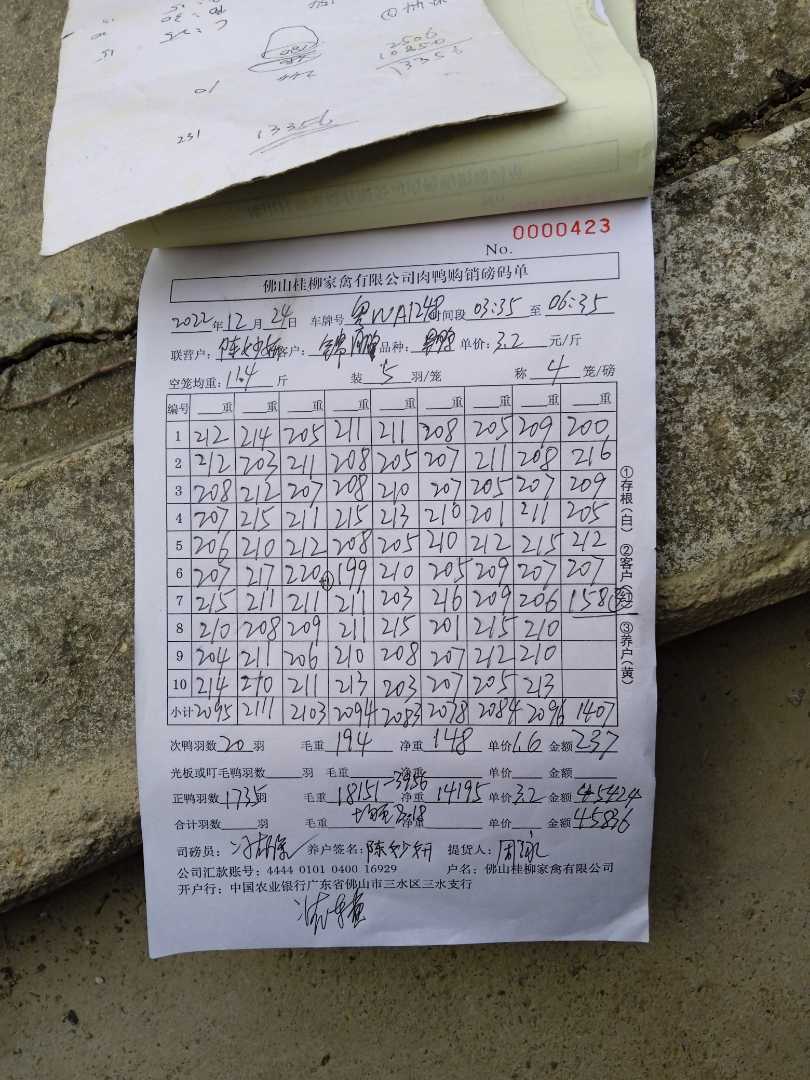 2506
10850
13356
13356
231
No. 0000423
佛山桂柳家禽有限公司肉鸭购销磅码单
2022年12月24日 车牌号 粤WA1248 时间段 03:35 至 06:35
联营户: 客户: 锦鹏 品种: 单价: 3.2 元/斤
空笼均重: 11.4 斤 装 5 羽/笼 称 4 笼/磅
编号 重 重 重 重 重 重 重 重 重
1 212 214 205 211 211 208 205 209 200
2 212 203 211 208 205 207 211 208 216
3 208 212 207 208 210 207 205 207 209
4 207 215 211 215 213 210 201 211 205
5 206 210 212 208 205 210 212 215 212
6 207 217 220 199 210 205 209 207 207
7 215 211 211 211 203 216 209 206 158 ③
8 210 208 209 211 215 201 215 210
9 204 211 206 210 208 207 212 210
10 214 210 211 213 203 207 205 213
小计 2095 2111 2103 2094 2083 2078 2084 2096 1407
①存根(白) ②客户(红) ③养户(黄)
次鸭羽数 20 羽 毛重 194 净重 148 单价 1.6 金额 237
光板或叮毛鸭羽数 羽 毛重 净重 单价 金额
正鸭羽数 1735 羽 毛重 18151 -3956 净重 14195 单价 3.2 金额 45424
合计羽数 羽 毛重 8.18 净重 单价 金额 45836
司磅员: 养户签名: 提货人:
公司汇款账号: 4444 0101 0400 16929 户名: 佛山桂柳家禽有限公司
开户行: 中国农业银行广东省佛山市三水区三水支行